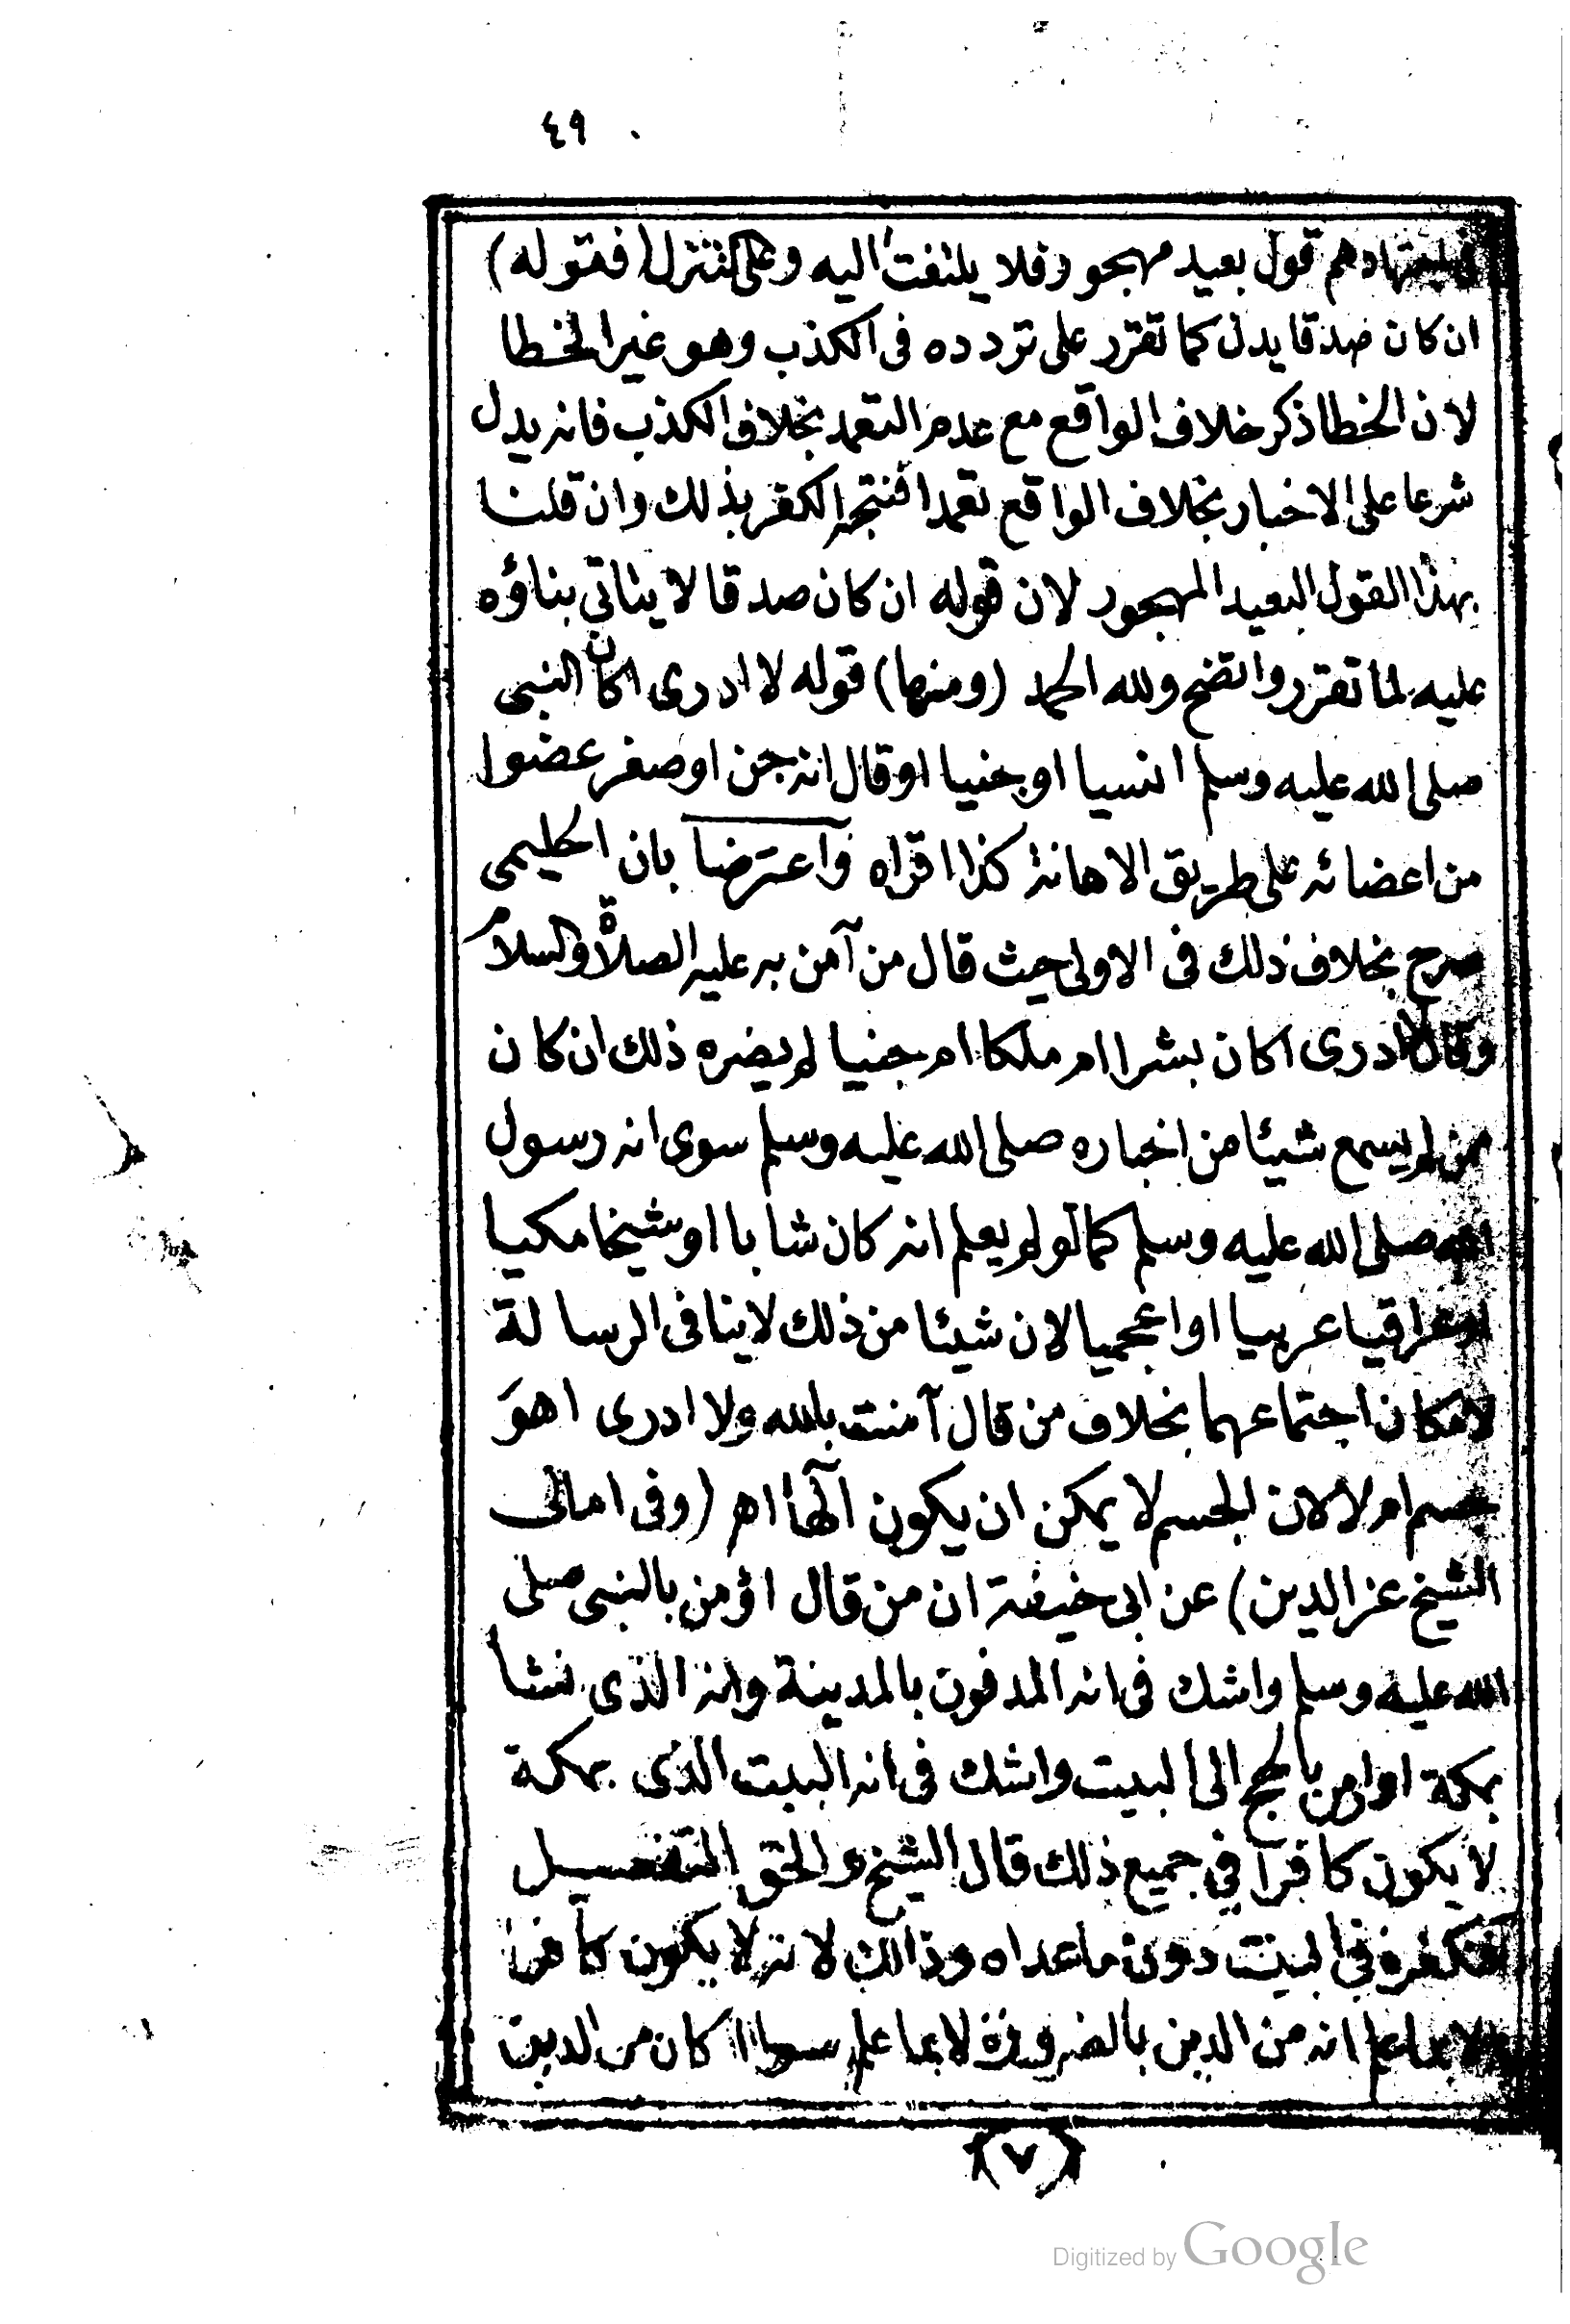 ٤٩
فى اجتهادهم قول بعيد مهجور فلا يلتفت اليه وعلى التنزل (فقوله)
ان كان صدقا يدل كما تقرر على تردده فى الكذب وهو غير الخطا
لان الخطا ذكر خلاف الواقع مع عدم التعمد بخلاف الكذب فانه يدل
شرعا على الاخبار بخلاف الواقع تعمدا فنتجه الكفر بذلك وان قلنا
بهذا القول البعيد المهجور لان قوله ان كان صدقا لا يتاتى بناؤه
عليه لما تقرر واتضح ولله الحمد (ومنها) قوله لا ادرى اكان النبى
صلى الله عليه وسلم انسيا او جنيا او قال انه جن او صغر عضوا
من اعضائه على طريق الاهانة كذا اقراه وآعترضا بان الحليمى
صرح بخلاف ذلك فى الاولى حيث قال من آمن به عليه الصلاة والسلام
وقال لا ادرى اكان بشرا ام ملكا ام جنيا لم يضره ذلك ان كان
ممن لم يسمع شيئا من اخباره صلى الله عليه وسلم سوى انه رسول
الله صلى الله عليه وسلم كما لو لم يعلم انه كان شابا او شيخا مكيا
او عراقيا عربيا او اعجميا لان شيئا من ذلك لا ينافى الرسالة
لامكان اجتماعهما بخلاف من قال آمنت بالله ولا ادرى اهو
جسم ام لا لان الجسم لا يمكن ان يكون الٓها اه (وفى امالى
الشيخ عز الدين) عن ابى حنيفة ان من قال اؤمن بالنبى صلى
الله عليه وسلم واشك فى انه المدفون بالمدينة وانه الذى نشأ
بمكة او اومن بالحج الى البيت واشك فى انه البيت الذى بمكة
لا يكون كافرا فى جميع ذلك قال الشيخ والحق التفصيل
فنكفره فى البيت دون ما عداه وذالك لانه لا يكون كافرا
الا بما علم انه من الدين بالضرورة لا بما علم سوا اكان من الدين
(٧)
Digitized by Google